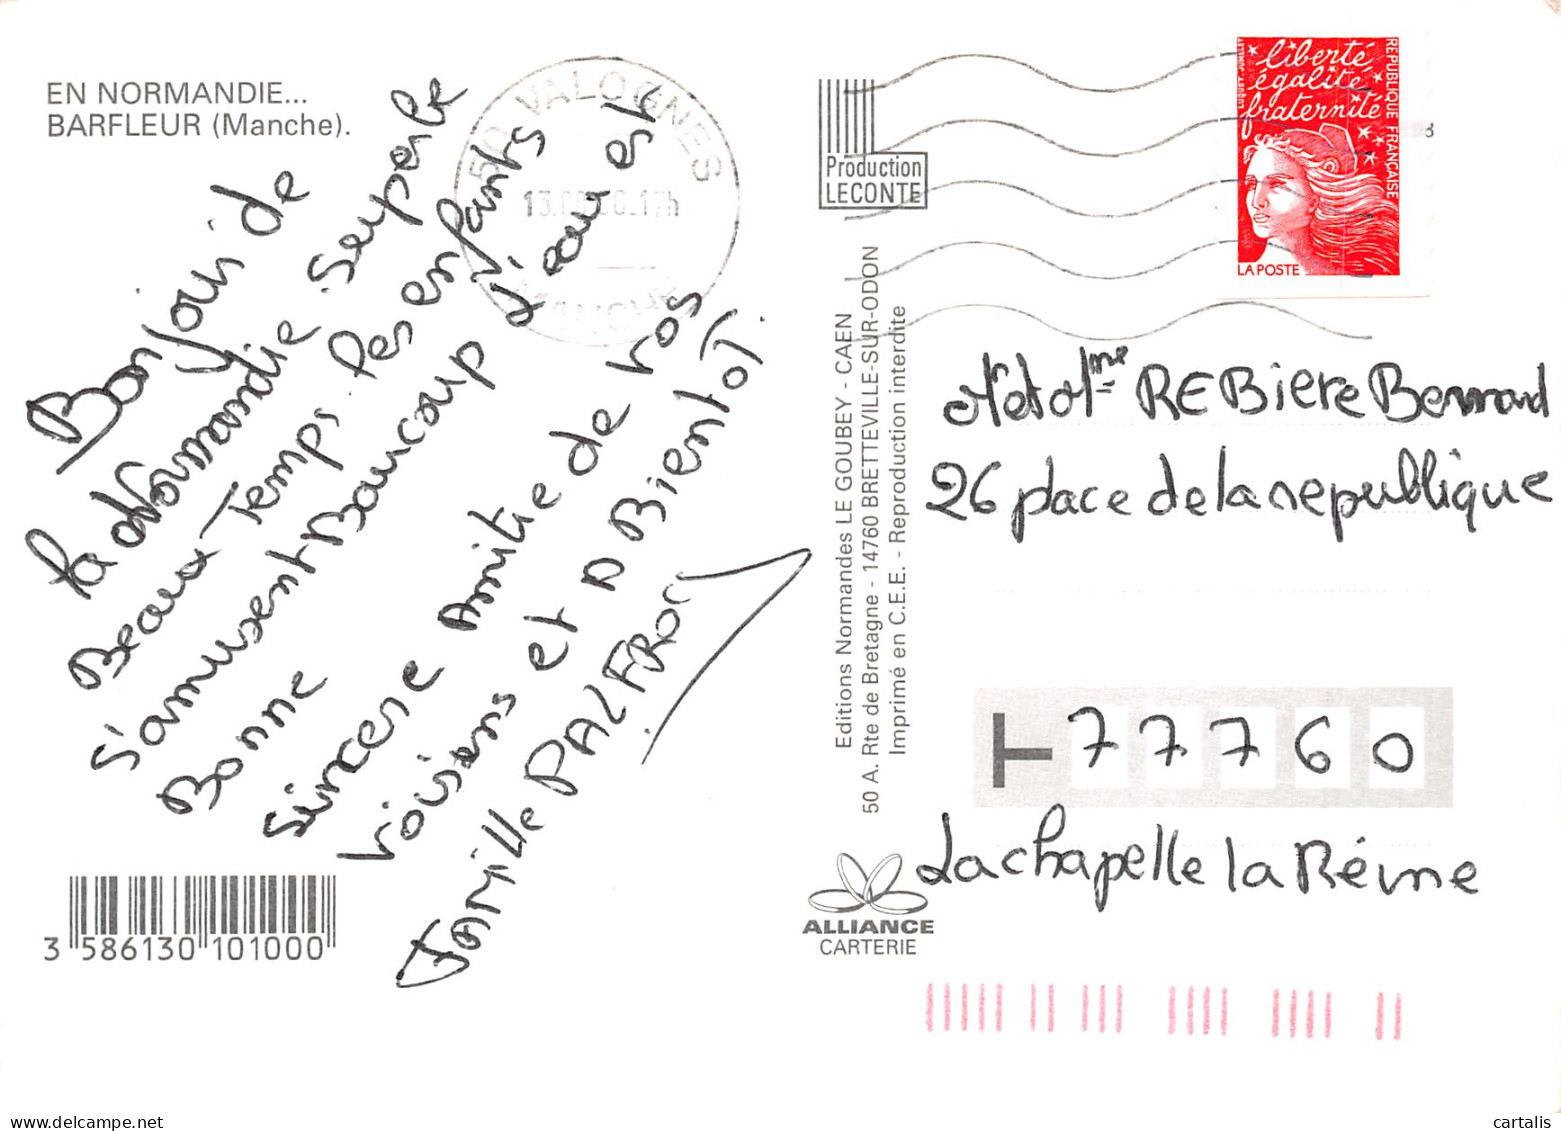 EN NORMANDIE...
BARFLEUR (Manche).
Bonjour de
la Normandie superbe
Beaux Temps les enfants
s'amusent Baucoup l'eau est
Bonne
sincere Amitie de vos
voisins et A Bientot.
Famille PALFROY
50 VALOGNES
MANCHE
Production
LECONTE
Editions Normandes LE GOUBEY - CAEN
50 A. Rte de Bretagne - 14760 BRETTEVILLE-SUR-ODON
Imprimé en C.E.E. - Reproduction interdite
liberté
égalité
fraternité
REPUBLIQUE FRANÇAISE
LA POSTE
M et Mme REBiere Bernard
26 place de la republique
T 77760
La chapelle la Réine
3 586130 101000
ALLIANCE
CARTERIE
delcampe.net
cartalis